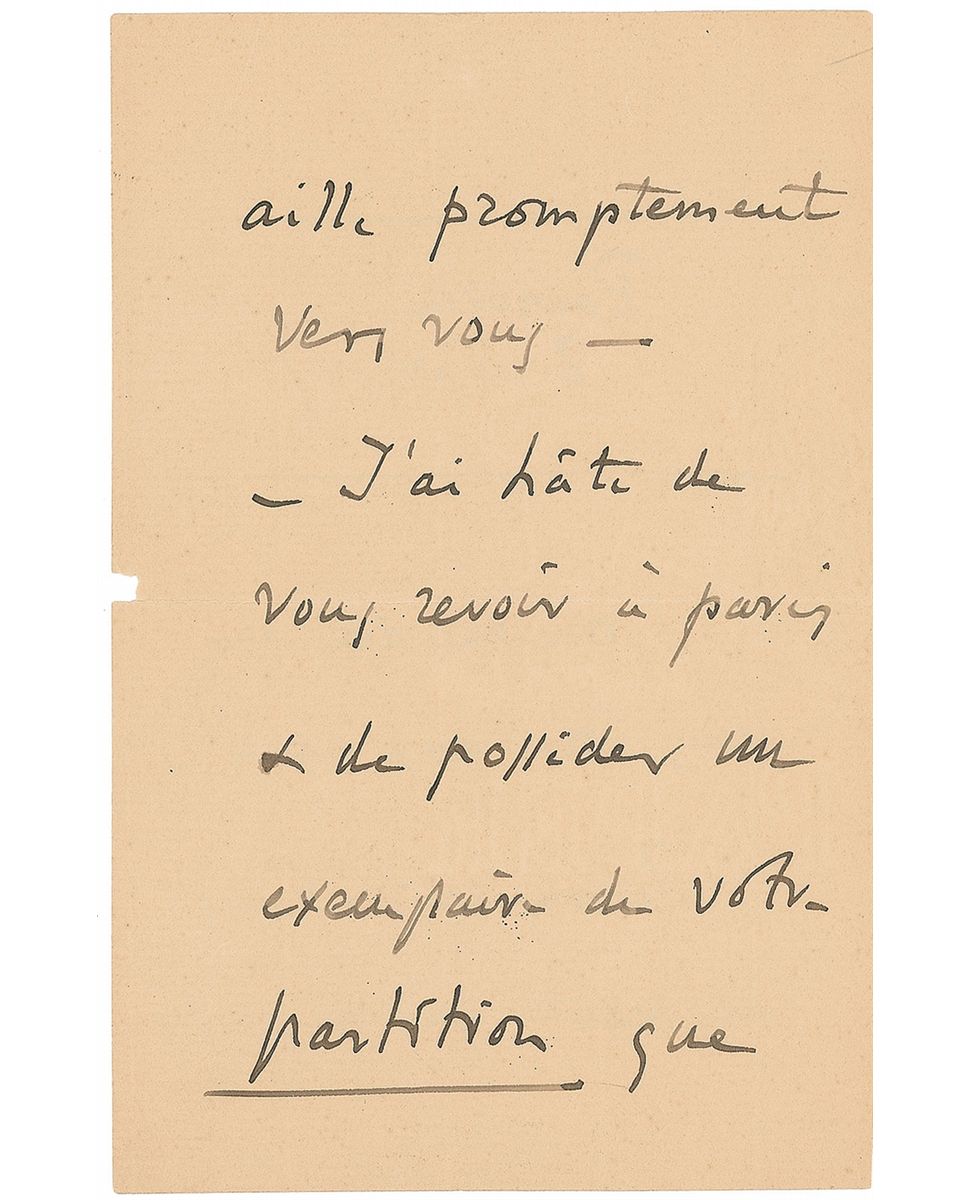 aille promptement
vers vous —
— J'ai hâte de
vous revoir à paris
& de posséder un
exemplaire de votre
partition que